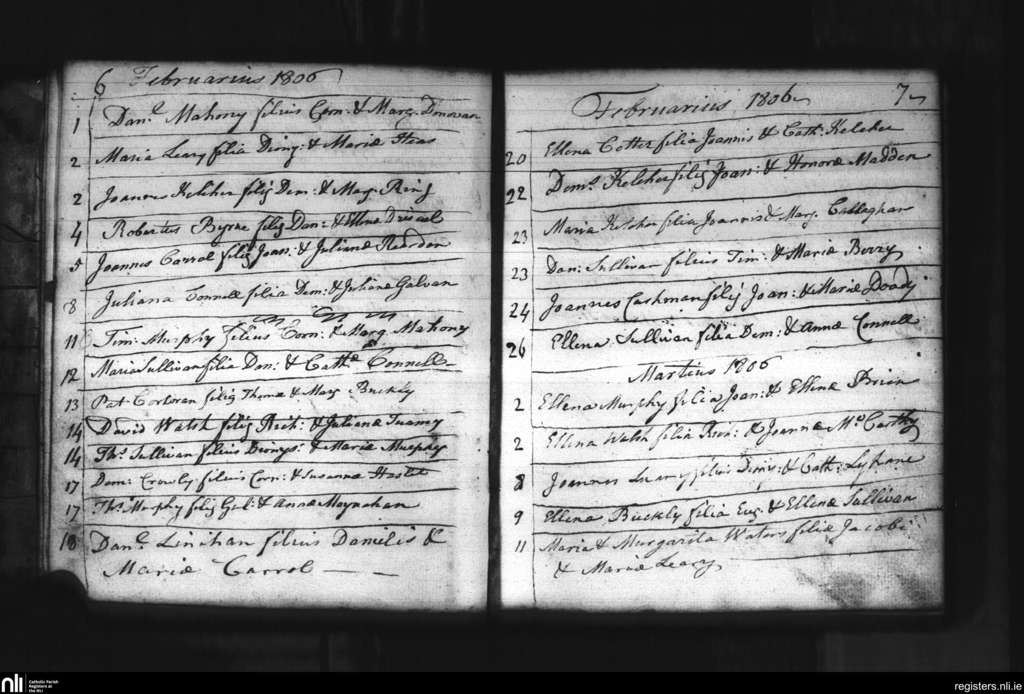 6 Februarius 1806
1 Danl. Mahony filius Corn: & Marg. Donovan
2 Maria Leary filia Diony: & Mariæ Heas
2 Joannes Kelcher filij Dem: & Mary Ring
4 Robertus Byrne filij Dan: & Elenæ Driscol
5 Joannes Carrol filij Joan: & Julianæ Reardon
8 Juliana Connell filia Dem: & Julianæ Galvan
11 Tim: Murphy filius Corn: & Marg. Mahony
12 Maria Sullivan filia Dan: & Cathæ Connell
13 Pat Corkoran filij Thomæ & Mary Buckly
14 David Walsh filij Rich: & Julianæ Tuomy
14 Ths. Sullivan filius Dionys: & Mariæ Murphy
17 Dem: Crowly filius Corn: & Susannæ
17 Ths. Murphy filij Gul: & Annæ Moynahan
18 Danl. Linihan filius Danielis &
Mariæ Carrol
Februarius 1806 7
20 Ellena Cotter filia Joannis & Cath: Kelcher
22 Dems. Kelcher filij Joan: & Honoræ Madden
23 Maria Kelcher filia Joannis & Mary Callaghan
23 Dan: Sullivan filius Tim: & Mariæ Berry
24 Joannes Cashman filij Joan: & Mariæ Doady
26 Ellena Sullivan filia Dem: & Annæ Connell
Martius 1806
2 Ellena Murphy filia Joan: & Ellenæ Brien
2 Ellena Walsh filia Rich: & Joannæ Mc.Carthy
8 Joannes Leary filius Diony: & Cath: Lyhane
9 Ellena Buckly filia Eug: & Ellenæ Sullivan
11 Maria & Margarita Waters filiæ Jacobi
& Mariæ Leary
nli Catholic Parish
Registers at
the NLI
registers.nli.ie